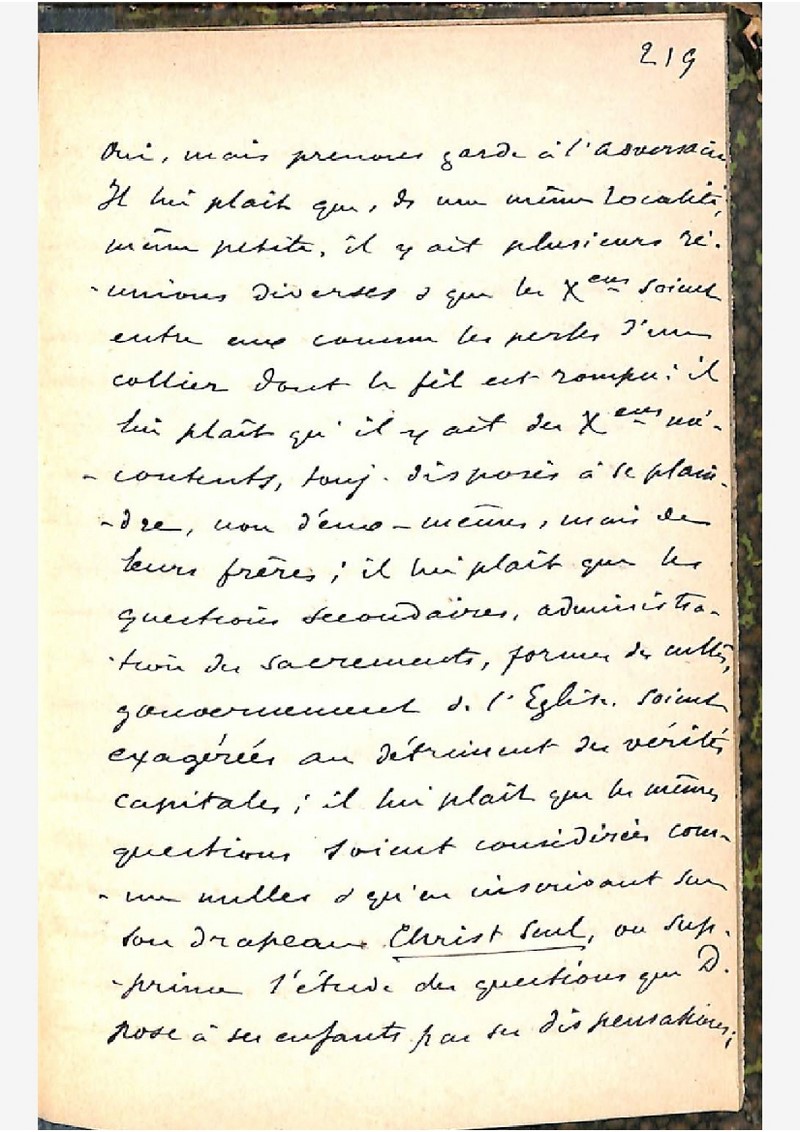 219
Oui, mais prenons garde à l'adversaire
Il lui plaît que, ds une même localité,
même petite, il y ait plusieurs ré-
-unions diverses & que les Xens soient
entre eux comme les perles d'un
collier dont le fil est rompu; il
lui plaît qu'il y ait des Xens mé-
-contents, touj. disposés à se plain-
-dre, non d'eux-mêmes, mais de
leurs frères; il lui plaît que les
questions secondaires, administra-
-tion des sacrements, formes des cultes,
gouvernement de l'Eglise, soient
exagérées au détriment des vérités
capitales; il lui plaît que les mêmes
questions soient considérées com-
-me nulles & qu'en inscrivant sur
son drapeau Christ Seul, on sup-
-prime l'étude des questions que D.
pose à ses enfants par ses dispensations;